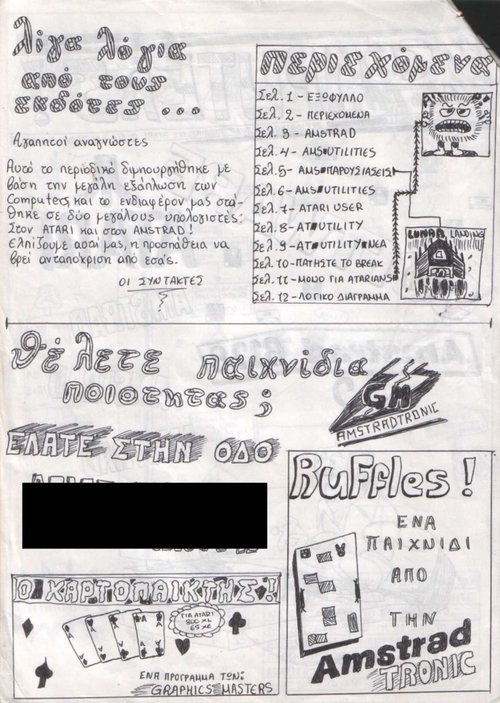 λίγα λόγια
από τους
εκδότες ...
Αγαπητοί αναγνώστες
Αυτό το περιοδικό δημιουργήθηκε με
βάση την μεγάλη εξάπλωση των
Computers, και το ενδιαφέρον μας στά-
θηκε σε δύο μεγάλους υπολογιστές:
Στον ATARI και στον AMSTRAD!
Ελπίζουμε αυτή μας, η προσπάθεια να
βρεί ανταπόκριση από εσάς.
ΟΙ ΣΥΝΤΑΚΤΕΣ
περιεχόμενα
Σελ. 1 - ΕΞΩΦΥΛΛΟ
Σελ. 2 - ΠΕΡΙΕΧΟΜΕΝΑ
Σελ. 3 - AMSTRAD
Σελ. 4 - AMS-UTILITIES
Σελ. 5 - AMS-ΠΑΡΟΥΣΙΑΣΕΙΣ
Σελ. 6 - AMS-UTILITIES
Σελ. 7 - ATARI USER
Σελ. 8 - AT-UTILITY
Σελ. 9 - AT-UTILITY-ΝΕΑ
Σελ. 10 - ΠΑΤΗΣΤΕ ΤΟ BREAK
Σελ. 11 - ΜΟΝΟ ΓΙΑ ATARIANS
Σελ. 12 - ΛΟΓΙΚΟ ΔΙΑΓΡΑΜΜΑ
LUNAR LANDING
θέλετε παιχνίδια
ποιότητας;
GM
AMSTRADTRONIC
ΕΛΑΤΕ ΣΤΗΝ ΟΔΟ
RUFfles!
ΕΝΑ
ΠΑΙΧΝΙΔΙ
ΑΠΟ
ΤΗΝ
Amstrad
TRONIC
Ο ΧΑΡΤΟΠΑΙΚΤΗΣ!
ΓΙΑ ATARI
800 XL
65 XE
ΕΝΑ ΠΡΟΓΡΑΜΜΑ ΤΩΝ:
GRAPHICS MASTERS